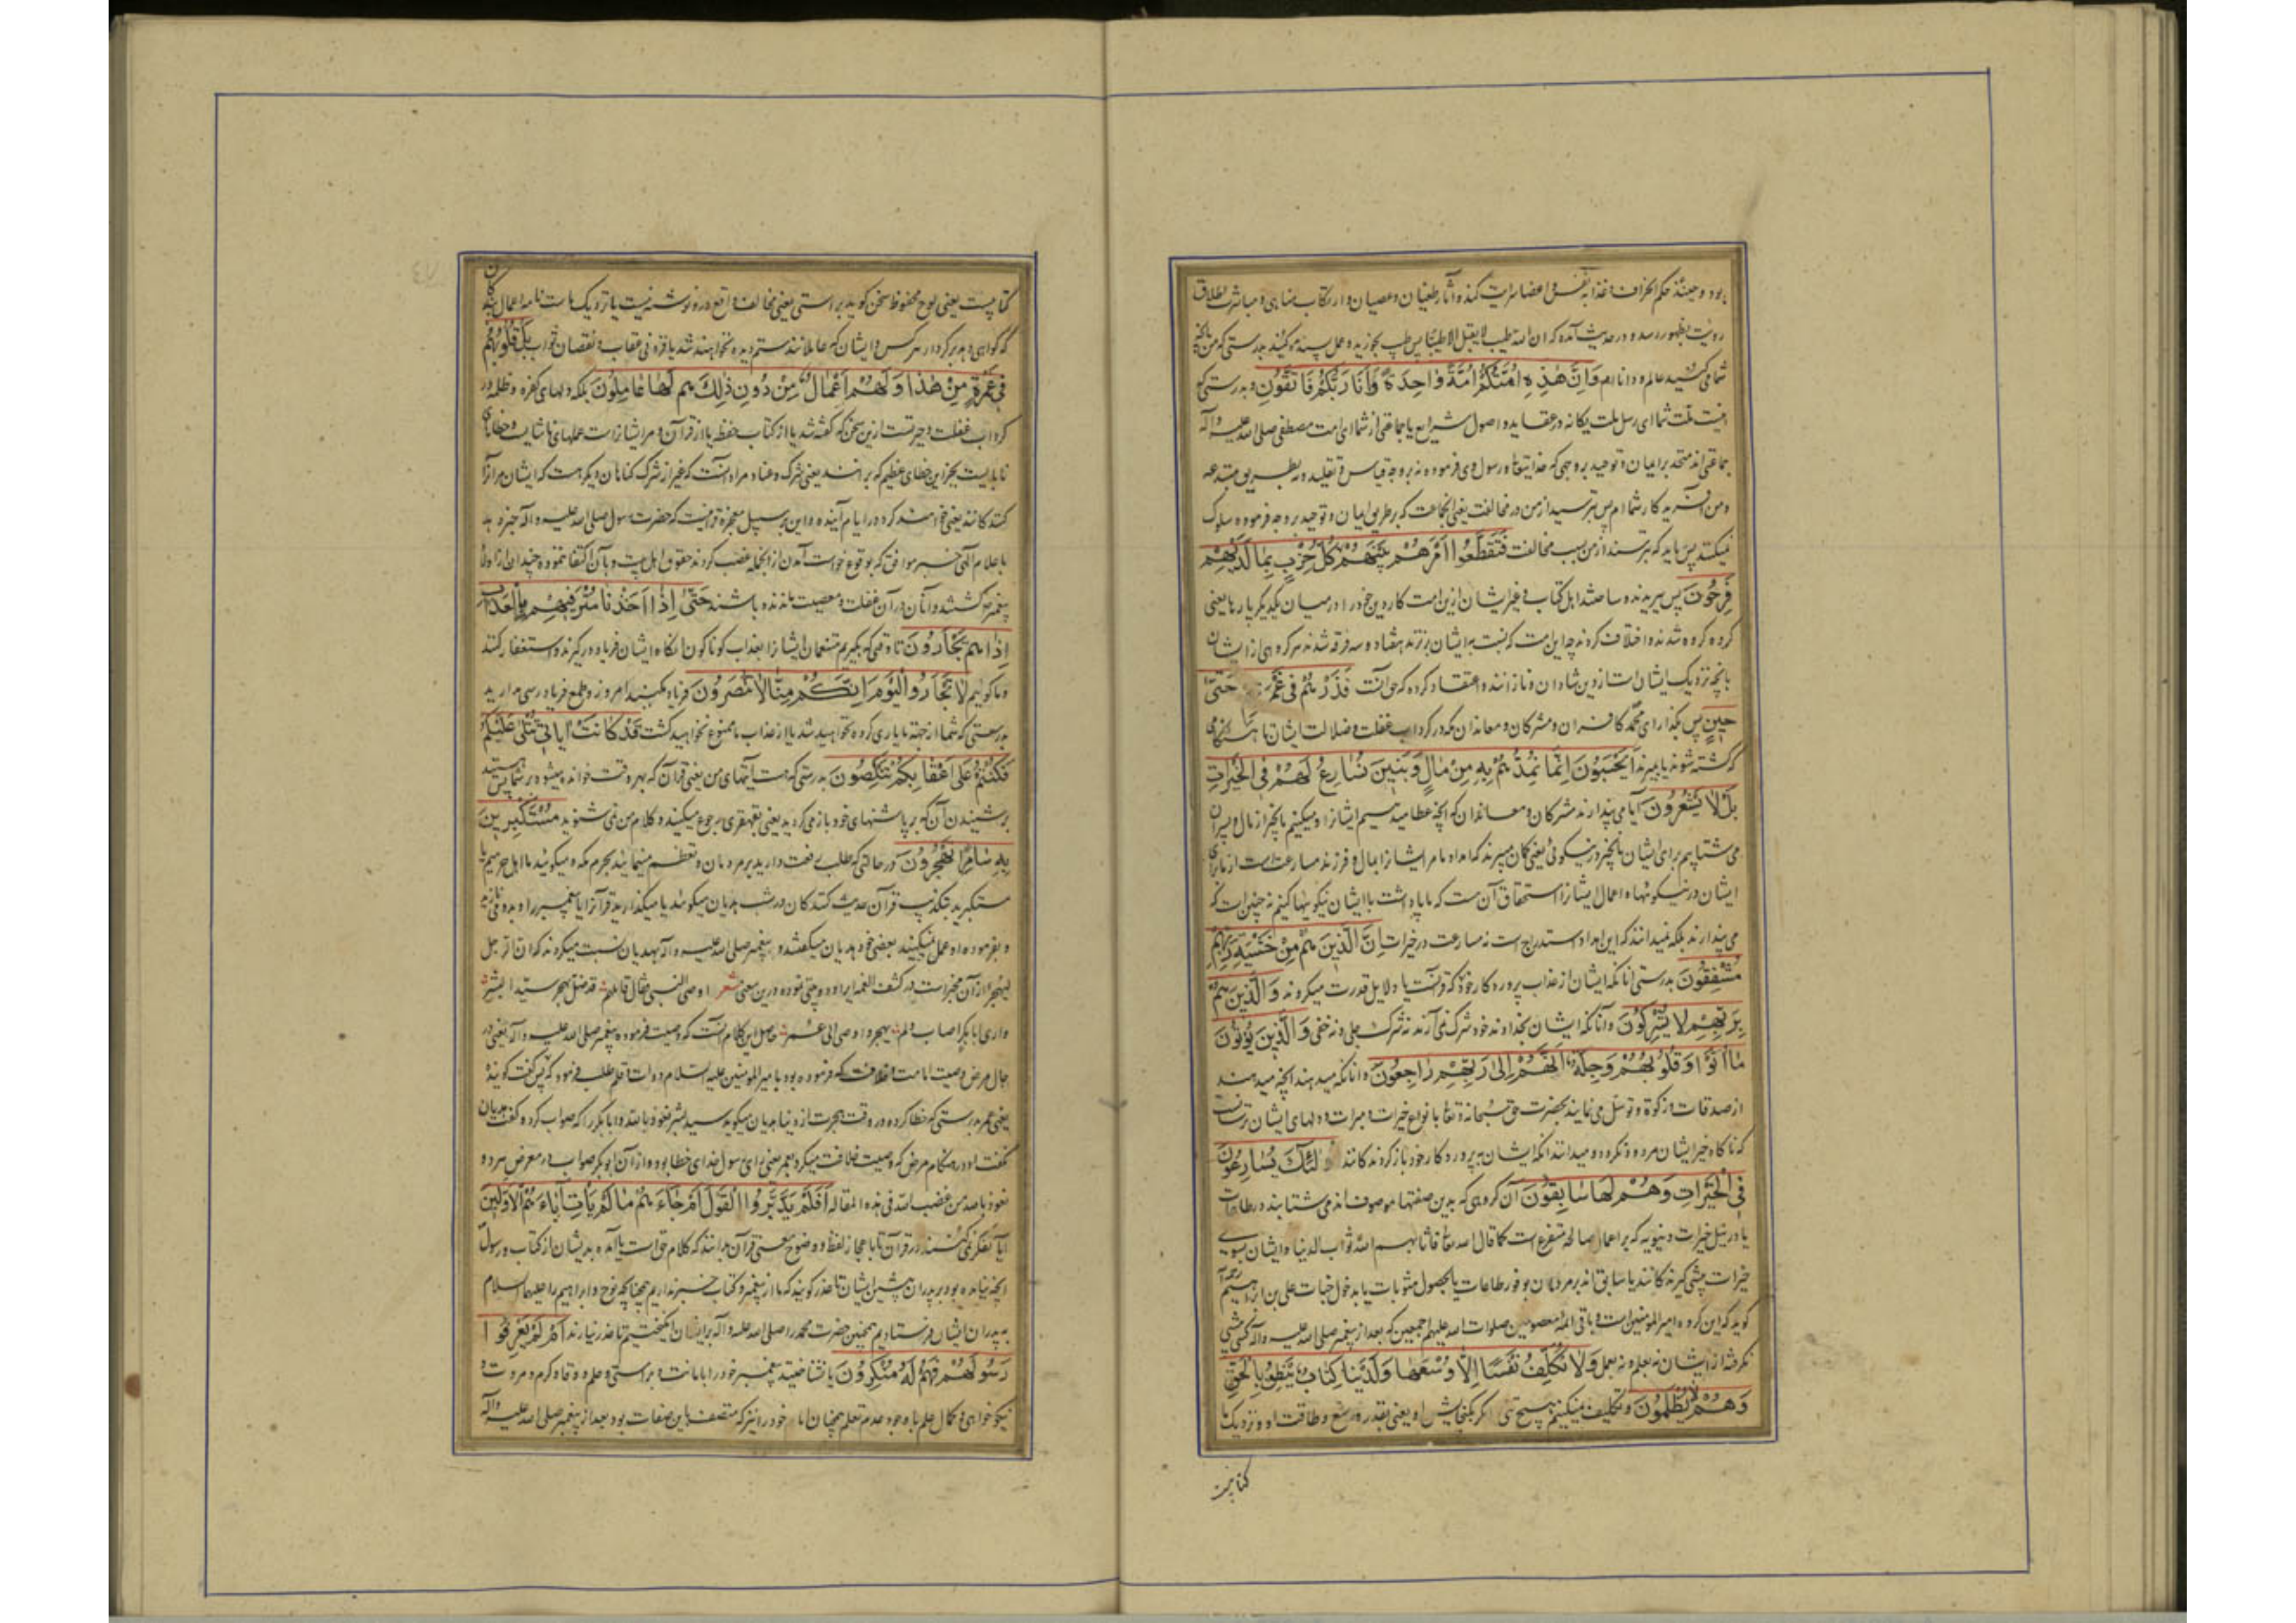 رویت بظهور رسد و در حدیث آمده که ان الله طیب لا یقبل الا طیبا پس طیب بخورید و عمل پسندیده کنید بدرستی که من بآنچه
شما می کنید عالم و دانا ام وَاِنَّ هٰذِهِ اُمَّتُكُمْ اُمَّةً وَاحِدَةً وَاَنَا رَبُّكُمْ فَاتَّقُونِ و بدرستی که
اینست ملت شما ای رسل ملت یگانه در عقاید و اصول شرایع یا جماعتی از شما ای امت مصطفی صلی الله علیه و آله
جماعتی اند متحد بر ایمان و توحید بر وجهی که خدایتعالی و رسول وی فرموده نه بر وجه قیاس و تقلید و نه بطریق مبتدعه
و من آفریدگار شما ام پس بترسید از من در مخالفت یعنی آنجماعت که بر طریق ایمان و توحید بر وجه فرموده سلوک
نمیکنند پس باید که بترسند از من بسبب مخالفت فَتَقَطَّعُوا اَمْرَهُمْ بَيْنَهُمْ كُلُّ حِزْبٍ بِمَا لَدَيْهِمْ
فَرِحُونَ پس ببریدند و ساختند اهل کتاب و غیر ایشان ازین امت کار دین خود را در میان یکدیگر پارها یعنی
گروه گروه شدند و اختلاف کردند چه این امت که نسبت به ایشان برترند هفتاد و سه فرقه شدند هر گروهی از ایشان
بآنچه نزدیک ایشان است از دین شادان و نازانند و اعتقاد کرده که حق آنست فَذَرْهُمْ فِي غَمْرَتِهِمْ حَتّٰى
حِينٍ پس بگذار ای محمد کافران و مشرکان و معاندان مکه در گرداب غفلت و ضلالت ایشان تا هنگامی
که کشته شوند یا بمیرند اَيَحْسَبُونَ اَنَّمَا نُمِدُّهُمْ بِهِ مِنْ مَالٍ وَبَنِينَ نُسَارِعُ لَهُمْ فِي الْخَيْرَاتِ
بَلْ لَا يَشْعُرُونَ آیا می پندارند مشرکان و معاندان که آنچه عطا میدهیم ایشانرا و میکنیم بآنچیز از مال و پسران
می شتابیم برای ایشان بآنچیز در نیکوئی یعنی گمان میبرند که امداد ما مر ایشانرا بمال و فرزند مسارعت است از ما برای
ایشان در نیکوئیها و اعمال ایشانرا استحقاق آن هست که بپاداشت با ایشان نیکوئیها کنیم نه چنین است که
می پندارند بلکه نمیدانند که این امداد استدراج است نه مسارعت در خیرات اِنَّ الَّذِينَ هُمْ مِنْ خَشْيَةِ رَبِّهِمْ
مُشْفِقُونَ بدرستی آنانکه ایشان از عذاب پروردگار خود وَالَّذِينَ هُمْ
بِرَبِّهِمْ لَا يُشْرِكُونَ و آنانکه ایشان بخداوند خود شرک نمی آرند نه شرک جلی و نه خفی وَالَّذِينَ يُؤْتُونَ
مَا آتَوْا وَقُلُوبُهُمْ وَجِلَةٌ اَنَّهُمْ اِلٰى رَبِّهِمْ رَاجِعُونَ و آنانکه میدهند آنچه میدهند
از صدقات و زکوة و توسل می نمایند بحضرت حق سبحانه و تعالی بانواع خیرات و مبرات و دلهای ایشان ترسانست
که ناگاه خیر ایشان مردود نگردد و میدانند آنکه ایشان به پروردگار خود بازگردندگانند اُولٰئِكَ يُسَارِعُونَ
فِي الْخَيْرَاتِ وَهُمْ لَهَا سَابِقُونَ آن گروهی که بدین صفتها موصوف اند می شتابند در طاعات
یا در نیل خیرات دنیویه که بر اعمال صالحه متفرع است کما قال الله تعالی فآتاهم الله ثواب الدنیا و ایشان بسوی
خیرات پیشی گیرندگانند یا سابق اند بر مردمان بوفور طاعات یا بحصول مثوبات یا بدخول جنات علی بن ابراهیم
گوید که این گروه امیر المومنین است و باقی ائمه معصومین صلوات الله علیهم اجمعین که بعد از پیغمبر صلی الله علیه و آله کسی پیشی
نگرفته از ایشان نه بعلم و نه بعمل وَلَا نُكَلِّفُ نَفْسًا اِلَّا وُسْعَهَا وَلَدَيْنَا كِتَابٌ يَنْطِقُ بِالْحَقِّ
وَهُمْ لَا يُظْلَمُونَ و تکلیف نمیکنیم هیچ تنی را مگر بگنجایش او یعنی بقدر وسع و طاقت او و نزدیک ما
کتابیست
کتابیست یعنی لوح محفوظ سخن گوید براستی یعنی مخالف واقع درو نوشته نیست یا نزدیک ماست نامه اعمال بندگان
که گواهی دهد بر کردار هر کس و ایشان که عاملانند ستم دیده نخواهند شد بافزونی عقاب و نقصان ثواب بَلْ قُلُوبُهُمْ
فِي غَمْرَةٍ مِنْ هٰذَا وَلَهُمْ اَعْمَالٌ مِنْ دُونِ ذٰلِكَ هُمْ لَهَا عَامِلُونَ بلکه دلهای کفره و ظلمه در
گرداب غفلت و حیرتست ازین سخن که گفته شد یا از کتاب حفظه یا از قرآن و مر ایشانراست عملهای ناشایست و خطای
نابایست بجز این خطای عظیم که بر آنند یعنی شرک و عناد مراد آنست که غیر از شرک گناهان دیگر هست که ایشان مر آنرا
کنندگانند یعنی خواهند کرد در ایام آینده و این بر سبیل معجزه قرآنیست که حضرت رسول صلی الله علیه و آله خبر داد
باعلام آلهی خبر موافق که بوقوع خواست آمدن از آنجمله غصب کردند حقوق اهل بیت و بآن اکتفا ننموده چندان از اولاد
پیغمبر کشتند و آنان در آن غفلت و معصیت مانده باشند حَتّٰى اِذَا اَخَذْنَا مُتْرَفِيهِمْ بِالْعَذَابِ
اِذَا هُمْ يَجْاَرُونَ تا وقتی که بگیریم متنعمان ایشانرا بعذاب گوناگون آنگاه ایشان فریاد درگیرند و استغفار کنند
و ما گوئیم لَا تَجْاَرُوا الْيَوْمَ اِنَّكُمْ مِنَّا لَا تُنْصَرُونَ فریاد مکنید امروز و طمع فریادرسی مدارید
بدرستی که شما از جهة ما یاری کرده نخواهید شد یا از عذاب ما ممنوع نخواهید گشت قَدْ كَانَتْ آيَاتِي تُتْلٰى عَلَيْكُمْ
فَكُنْتُمْ عَلٰى اَعْقَابِكُمْ تَنْكِصُونَ بدرستی که هست آیتهای من یعنی قرآن که بهر وقت خوانده میشود بر شما پس هستید
بر شنیدن آن که بر پاشنهای خود باز می گردید یعنی بقهقری رجوع میکنید و کلام من نمی شنوید مُسْتَكْبِرِينَ
بِهِ سَامِرًا تَهْجُرُونَ در حالتی که طلب رفعت دارید بر مردمان و تعظم مینمائید بحرم مکه و میگوئید ما اهل حرمیم یا
مستکبرید بتکذیب قرآن حدیث کنندگان در شب هذیان میگوئید یا میگذارید قرآنرا یا پیغمبر را
و بفرموده او عمل نمیکنید بعضی خود هذیان میگفتند و پیغمبر صلی الله علیه و آله بهذیان نسبت میکردند که ان الرجل
لیهجر از آن مخبر است در کشف الغمه ایراد دو بیتی نموده درین معنی شعر اوصی النبی فقال قائلهم قد ضل یهجر سید البشر
و اری ابابکر اصاب و لم یهجر و اوصی الی عمر حاصل این کلام آنست که وصیت فرموده پیغمبر صلی الله علیه و آله یعنی در
حال مرض وصیت امامت و خلافت که فرموده بود بامیر المومنین علیه السلام دوات و قلم طلب فرمود که پس گفت گوینده
یعنی عمر بدرستی که خطا کرده در وقت هجرت از دنیا هذیان میگوید سید بشر نعوذ بالله و ابابکر را که صواب کرد و گفت هذیان
نگفت او در هنگام مرض که وصیت خلافت میکرد بعمر یعنی برای رسول خدای خطا بود و از آن ابوبکر صواب در معرض مرده و
نعوذ بالله من غضب الله فی هذه المقاله اَفَلَمْ يَدَّبَّرُوا الْقَوْلَ اَمْ جَاءَهُمْ مَا لَمْ يَأْتِ آبَاءَهُمُ الْاَوَّلِينَ
آیا تفکر نمی کنند در قرآن تا باعجاز لفظ و وضوح معنی قرآن بدانند که کلام حق است یا آمده بدیشان از کتاب و رسول
آنچه نیامده بود بر پدران پیشین ایشان تا عذر گویند که ما از پیغمبر و کتاب خبر نداریم چنانچه نوح و ابراهیم را علیهما السلام
به پدران ایشان فرستادیم همچنین حضرت محمد را صلی الله علیه و آله بر ایشان انگیختیم تا عذر نیارند اَمْ لَمْ يَعْرِفُوا
رَسُولَهُمْ فَهُمْ لَهُ مُنْكِرُونَ یا نشناختید پیغمبر خود را بامانت و براستی و علم و وقار و کرم و مروت و
نیکو خواهی و کمال علم با وجود عدم تعلم همچنان امام خود را نیز که متصف باین صفات بود بعد از پیغمبر صلی الله علیه و آله